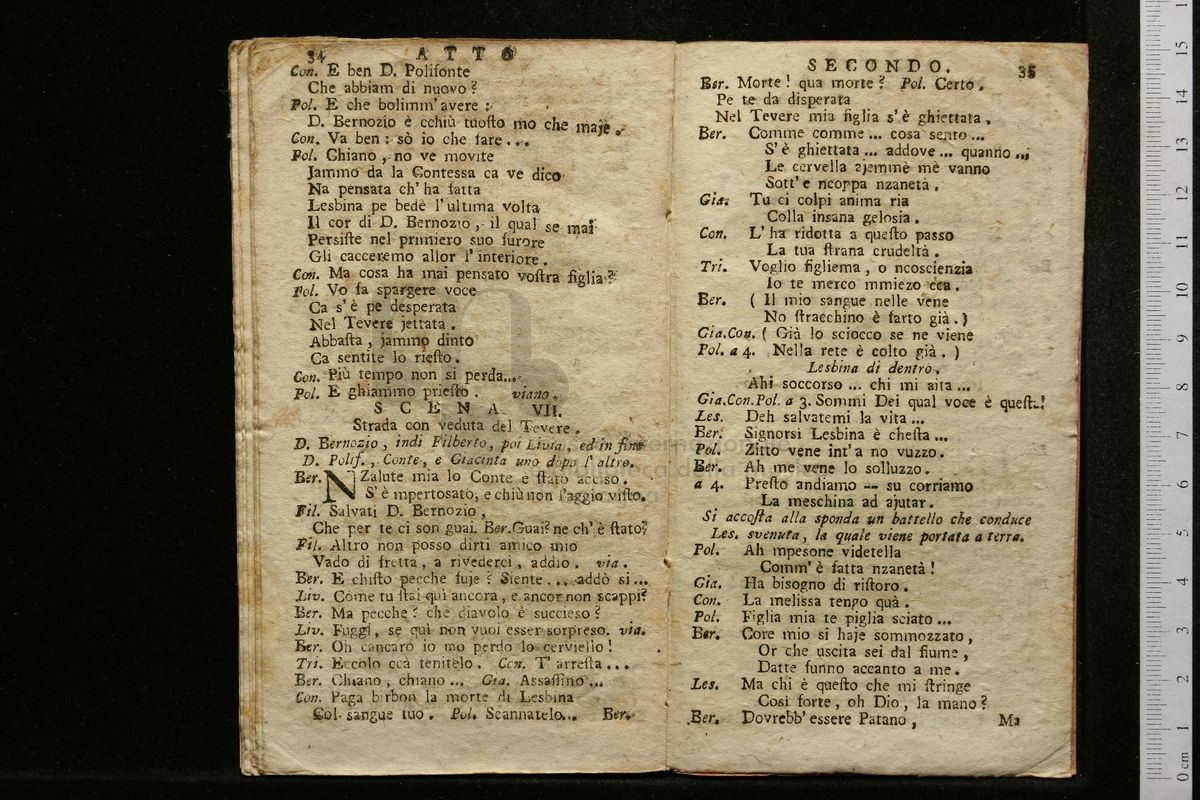 34 ATTO
Con. E ben D. Polifonte
Che abbiam di nuovo?
Pol. E che bolimm' avere:
D. Bernozio è cchiù tuosto mo che maje.
Con. Va ben: sò io che fare...
Pol. Chiano, no ve movite
Jammo da la Contessa ca ve dico
Na pensata ch' ha fatta
Lesbina pe bedè l'ultima volta
Il cor di D. Bernozio, il qual se mai
Persiste nel primiero suo furore
Gli cacceremo allor l'interiore.
Con. Ma cosa ha mai pensato vostra figlia?
Pol. Vo fa spargere voce
Ca s'è pe desperata
Nel Tevere jettata.
Abbasta, jammo dinto
Ca sentite lo riesto.
Con. Più tempo non si perda...
Pol. E ghiammo priesto. viano.
SCENA VII.
Strada con veduta del Tevere.
D. Bernozio, indi Filberto, poi Livia, ed in fine
D. Polif., Conte, e Giacinta uno dopo l'altro.
Ber. NZalute mia lo Conte è stato acciso.
S'è mpertosato, e chiù non l'aggio visto.
Fil. Salvati D. Bernozio,
Che per te ci son guai. Ber. Guai? ne ch' è stato?
Fil. Altro non posso dirti amico mio
Vado di fretta, a rivederci, addio. via.
Ber. E chisto pecche fuje? Siente... addò si...
Liv. Come tu stai quì ancora, e ancor non scappi?
Ber. Ma pecche? che diavolo è succieso?
Liv. Fuggi, se quì non vuoi esser sorpreso. via.
Ber. Oh cancaro io mo perdo lo cerviello!
Tri. Eccolo ccà tenitelo. Con. T'arresta...
Ber. Chiano, chiano... Gia. Assassino...
Con. Paga birbon la morte di Lesbina
Col sangue tuo. Pol. Scannatelo... Ber.
SECONDO. 35
Ber. Morte! qua morte? Pol. Certo.
Pe te da disperata
Nel Tevere mia figlia s'è ghiettata.
Ber. Comme comme... cosa sento...
S'è ghiettata... addove... quanno...
Le cervella ajemmè mè vanno
Sott'e ncoppa nzaneta.
Gia. Tu ci colpi anima ria
Colla insana gelosia.
Con. L'ha ridotta a questo passo
La tua strana crudeltà.
Tri. Voglio figliema, o ncoscienzia
Io te merco mmiezo cca.
Ber. (Il mio sangue nelle vene
No stracchino è farto già.)
Gia.Con. (Già lo sciocco se ne viene
Pol. a 4. Nella rete è colto già.)
Lesbina di dentro.
Ahi soccorso... chi mi aita...
Gia.Con.Pol. a 3. Sommi Dei qual voce è questa!
Les. Deh salvatemi la vita...
Ber. Signorsi Lesbina è chesta...
Pol. Zitto vene int'a no vuzzo.
Ber. Ah me vene lo solluzzo.
a 4. Presto andiamo -- su corriamo
La meschina ad ajutar.
Si accosta alla sponda un battello che conduce
Les. svenuta, la quale viene portata a terra.
Pol. Ah mpesone videtella
Comm'è fatta nzanetà!
Gia. Ha bisogno di ristoro.
Con. La melissa tengo quà.
Pol. Figlia mia te piglia sciato...
Ber. Core mio si haje sommozzato,
Or che uscita sei dal fiume,
Datte funno accanto a me.
Les. Ma chi è questo che mi stringe
Così forte, oh Dio, la mano?
Ber. Dovrebb' essere Patano, Ma
0 cm 1 2 3 4 5 6 7 8 9 10 11 12 13 14 15